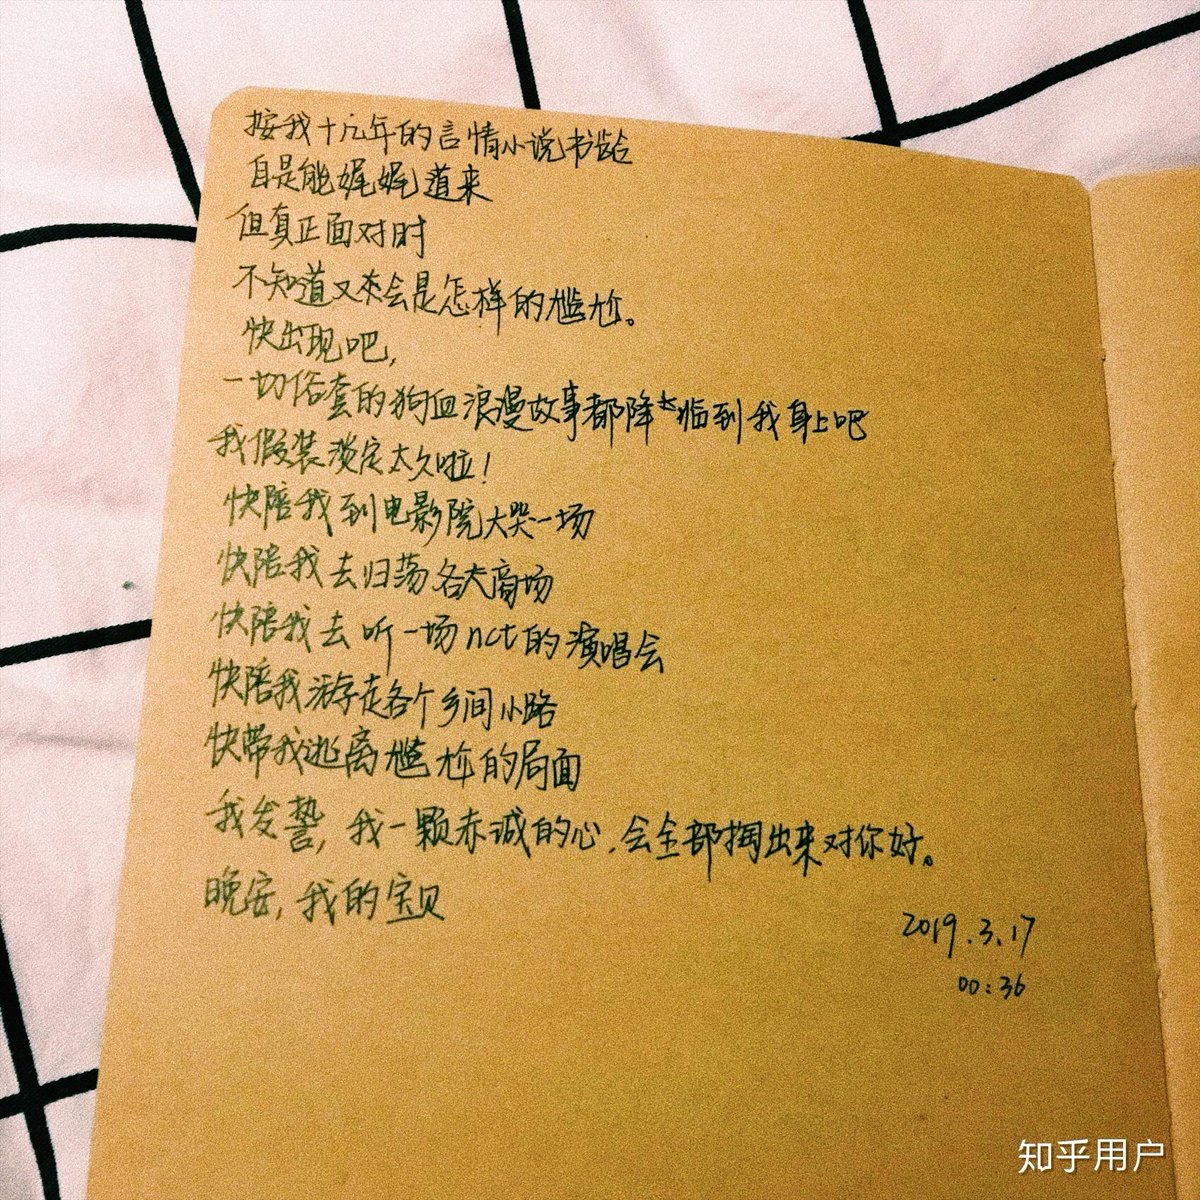 按我十几年的言情小说书龄
自是能娓娓道来
但真正面对时
不知道又来会是怎样的尴尬。
快出现吧,
一切俗套的狗血浪漫故事都降临到我身上吧
我假装淡定太久啦!
快陪我到电影院大哭一场
快陪我去归荡各大商场
快陪我去听一场nct的演唱会
快陪我游走各个乡间小路
快带我逃离尴尬的局面
我发誓,我一颗赤诚的心,会全部掏出来对你好。
晚安,我的宝贝
2019.3.17
00:36
知乎用户